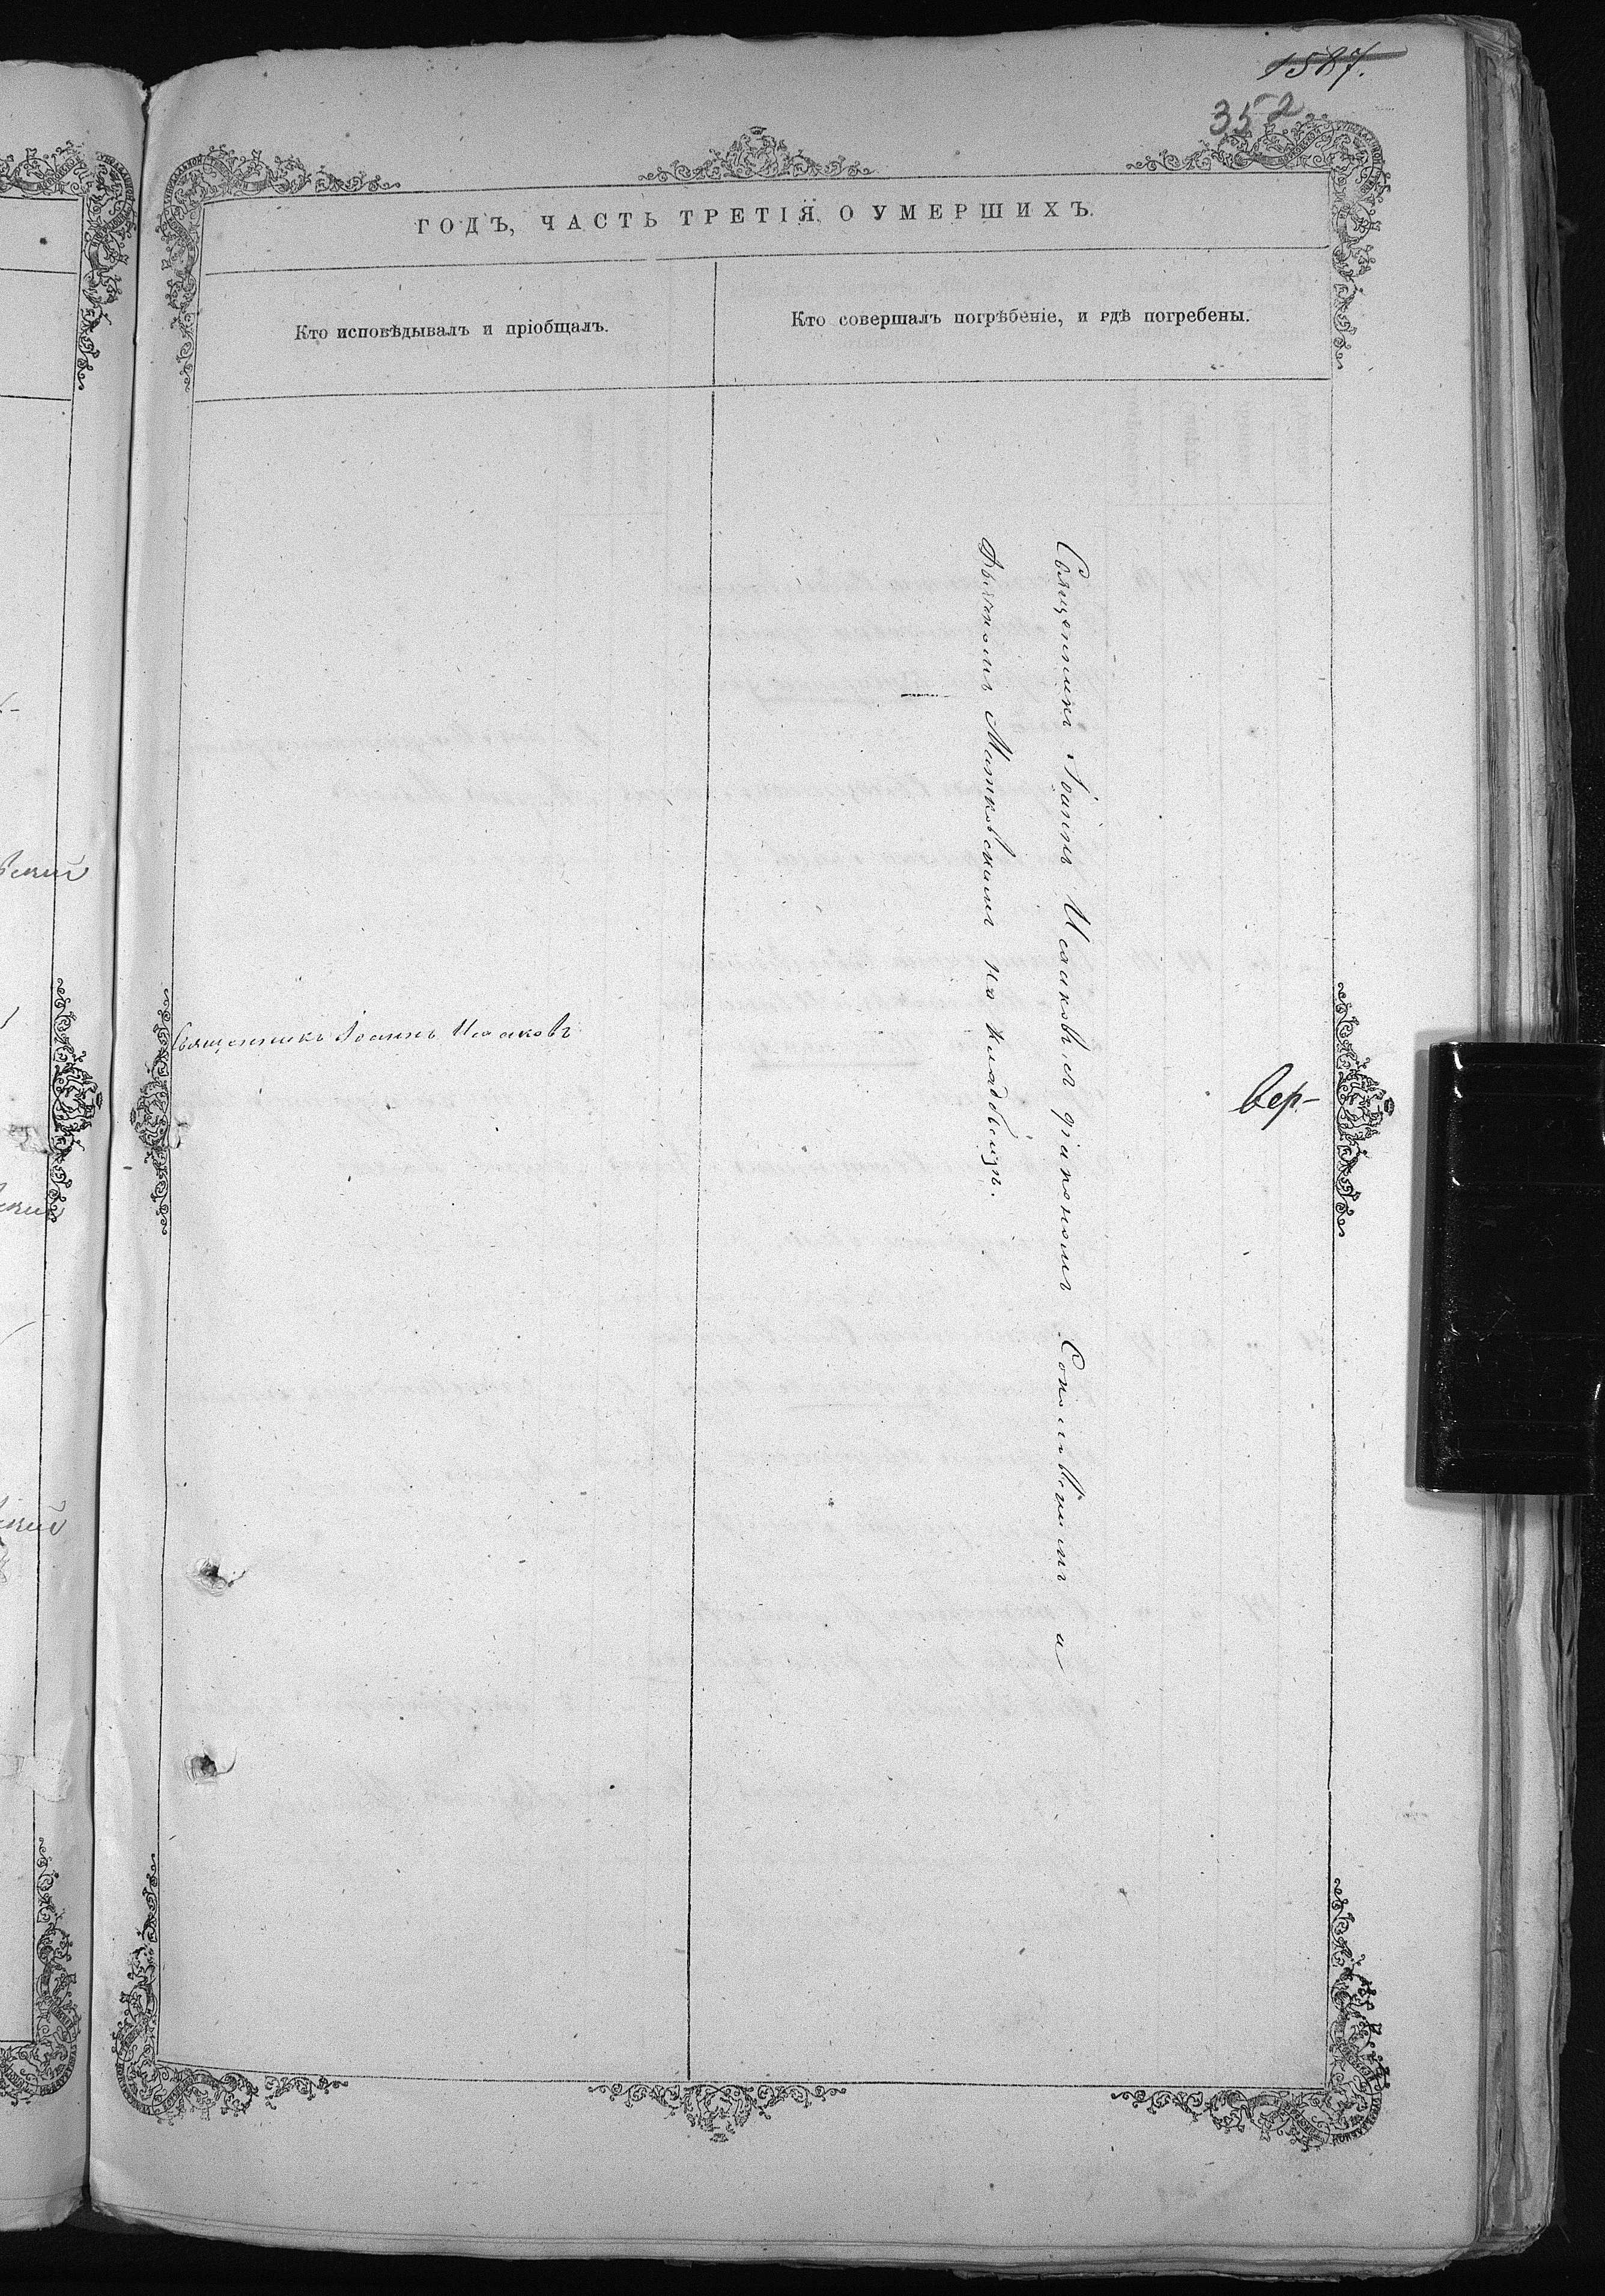 1587.
352
ГОДЪ, ЧАСТЬ ТРЕТІЯ О УМЕРШИХЪ.
Кто исповѣдывалъ и пріобщалъ.
Кто совершалъ погрѣбеніе, и гдѣ погребены.
Священникъ Іоаннъ Исаковъ
Священникъ Іоаннъ Исаковъ съ діакономъ и
дьячкомъ на кладбищѣ.
вер-